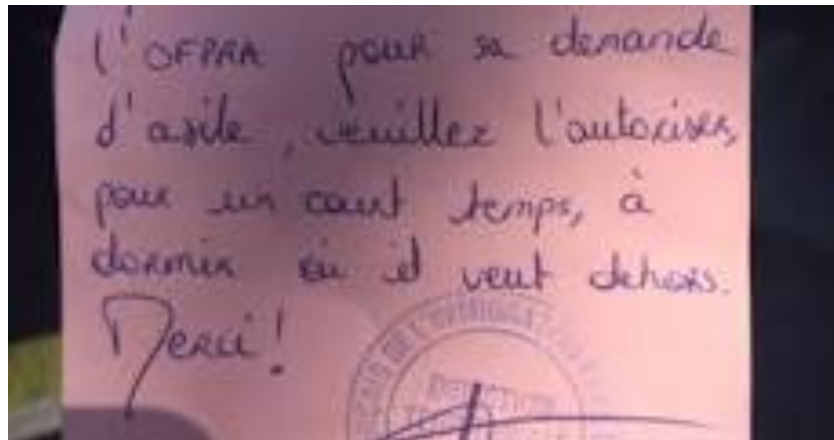 l'OFPRA pour sa demande
d'asile, veuillez l'autoriser,
pour un court temps, à
dormir où il veut dehors.
Merci!
DE L'OFFICE